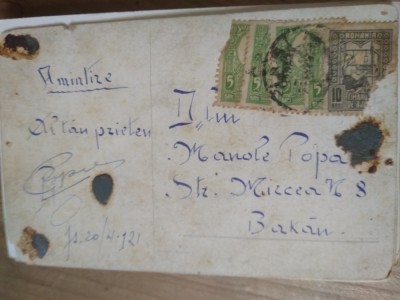 Amintire
Al tău prieten
Is. 20/ /921
D-lui
Manole Popa
Str. Mircea N 8
Bakău.
5
5
5
5
ROMANIA
10